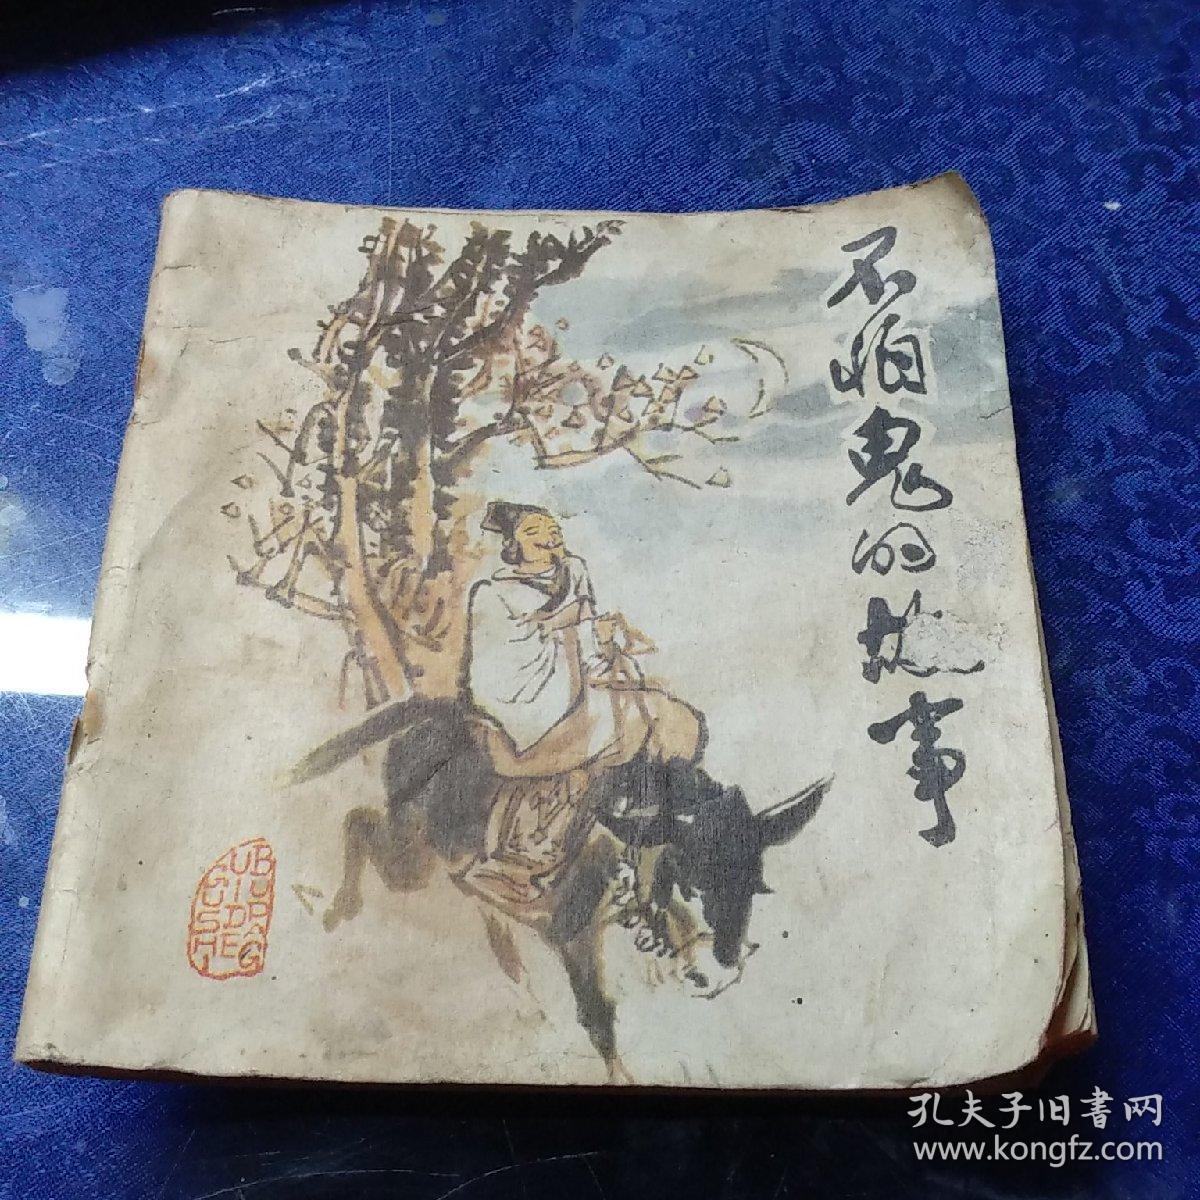 不怕鬼的故事
BUPAG
UIDE
GUSHI
孔夫子旧書网
www.kongfz.com